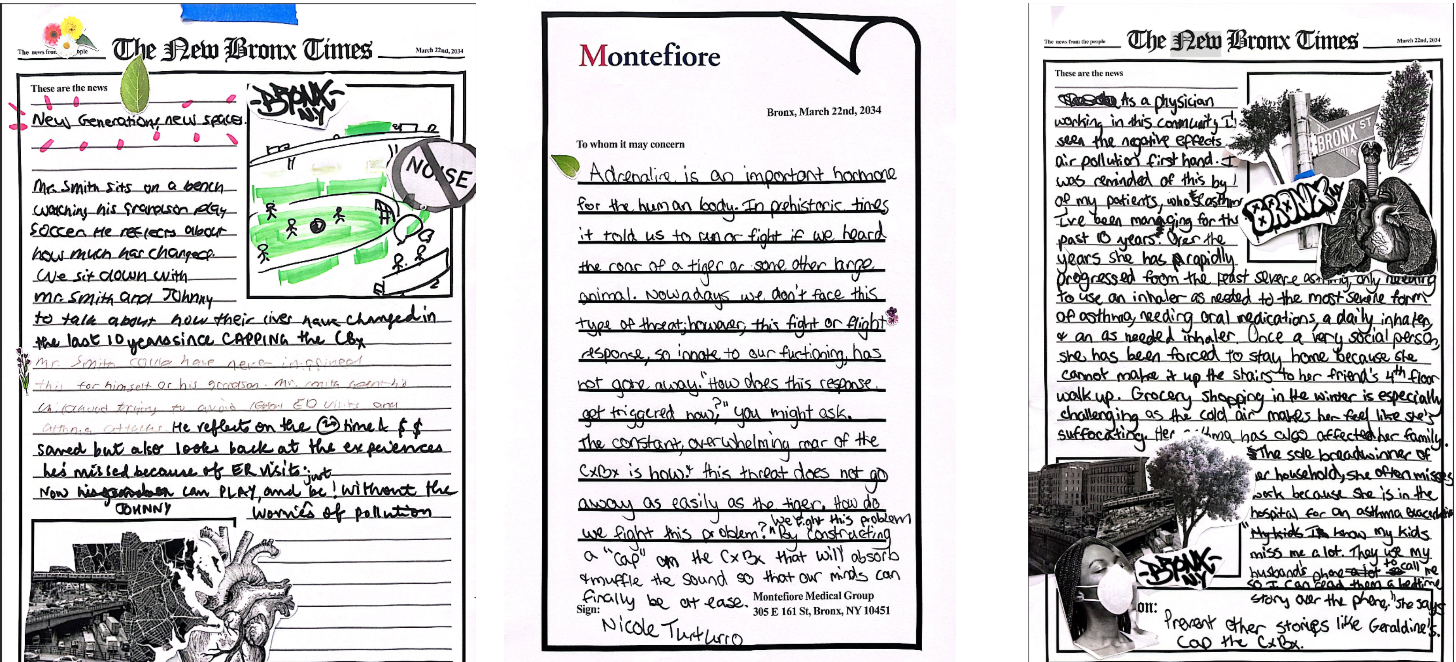 The news from people
The New Bronx Times
March 22nd, 2034
These are the news
New Generations, new spaces.
Mr. Smith sits on a bench
watching his grandson play
soccer. He reflects about
how much has changed.
We sit down with
Mr. Smith and Johnny
to talk about how their lives have changed in
the last 10 years since CAPPING the CBx
Mr. Smith could have never imagined
this for himself or his grandson. Mr. Smith spent his
childhood trying to avoid ED visits and
asthma attacks. He reflect on the time & $ $
saved but also looks back at the experiences
he's missed because of ER visits.
Now JOHNNY can PLAY, and just be! without the
worries of pollution
-BRONX-
N.Y.
NOISE
Montefiore
Bronx, March 22nd, 2034
To whom it may concern
Adrenaline is an important hormone
for the human body. In prehistoric times
it told us to run or fight if we heard
the roar of a tiger or some other large
animal. Nowadays we don't face this
type of threat; however, this fight or flight
response, so innate to our fuctioning, has
not gone away. "How does this response
get triggered now?" you might ask.
The constant, overwhelming roar of the
CxBx is how! this threat does not go
away as easily as the tiger. How do
we fight this problem? "We fight this problem
By constructing
a "cap" on the CxBx that will absorb
& muffle the sound so that our minds can
finally be at ease.
Montefiore Medical Group
Sign:
305 E 161 St, Bronx, NY 10451
Nicole Turturro
The news from the people
The New Bronx Times
March 22nd, 2034
These are the news
As a physician
working in this community I
seen the negative effects
air pollution first hand. I
was reminded of this by 1
of my patients, who's asthm
I've been managing for the
past 10 years. Over the
years she has rapidly
progressed from the least severe asthma, only needing
to use an inhaler as needed to the most severe form
of asthma, needing oral medications, a daily inhaler,
& an as needed inhaler. Once a very social person,
she has been forced to stay home because she
cannot make it up the stairs to her friend's 4th floor
walk up. Grocery shopping in the winter is especially
challenging as the cold air makes her feel like she's
suffocating. Her asthma has also affected her family.
The sole breadwinner of
er household, she often misses
work because she is in the
hospital for an asthma exacerbation
"I know my kids
miss me a lot. They use my
husband's phone to call me
so I can read them a bedtime
story over the phone," she says
on:
Prevent other stories like Geraldine's.
Cap the CxBx.
BRONX ST
BRONX
-BRONX-
NY